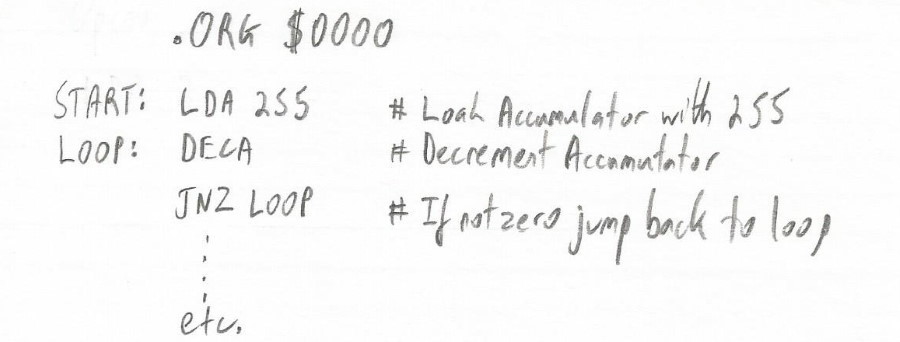 .ORG $0000
START: LDA 255 # Load Accumulator with 255
LOOP: DECA # Decrement Accumutator
JNZ LOOP # If not zero jump back to loop
etc.